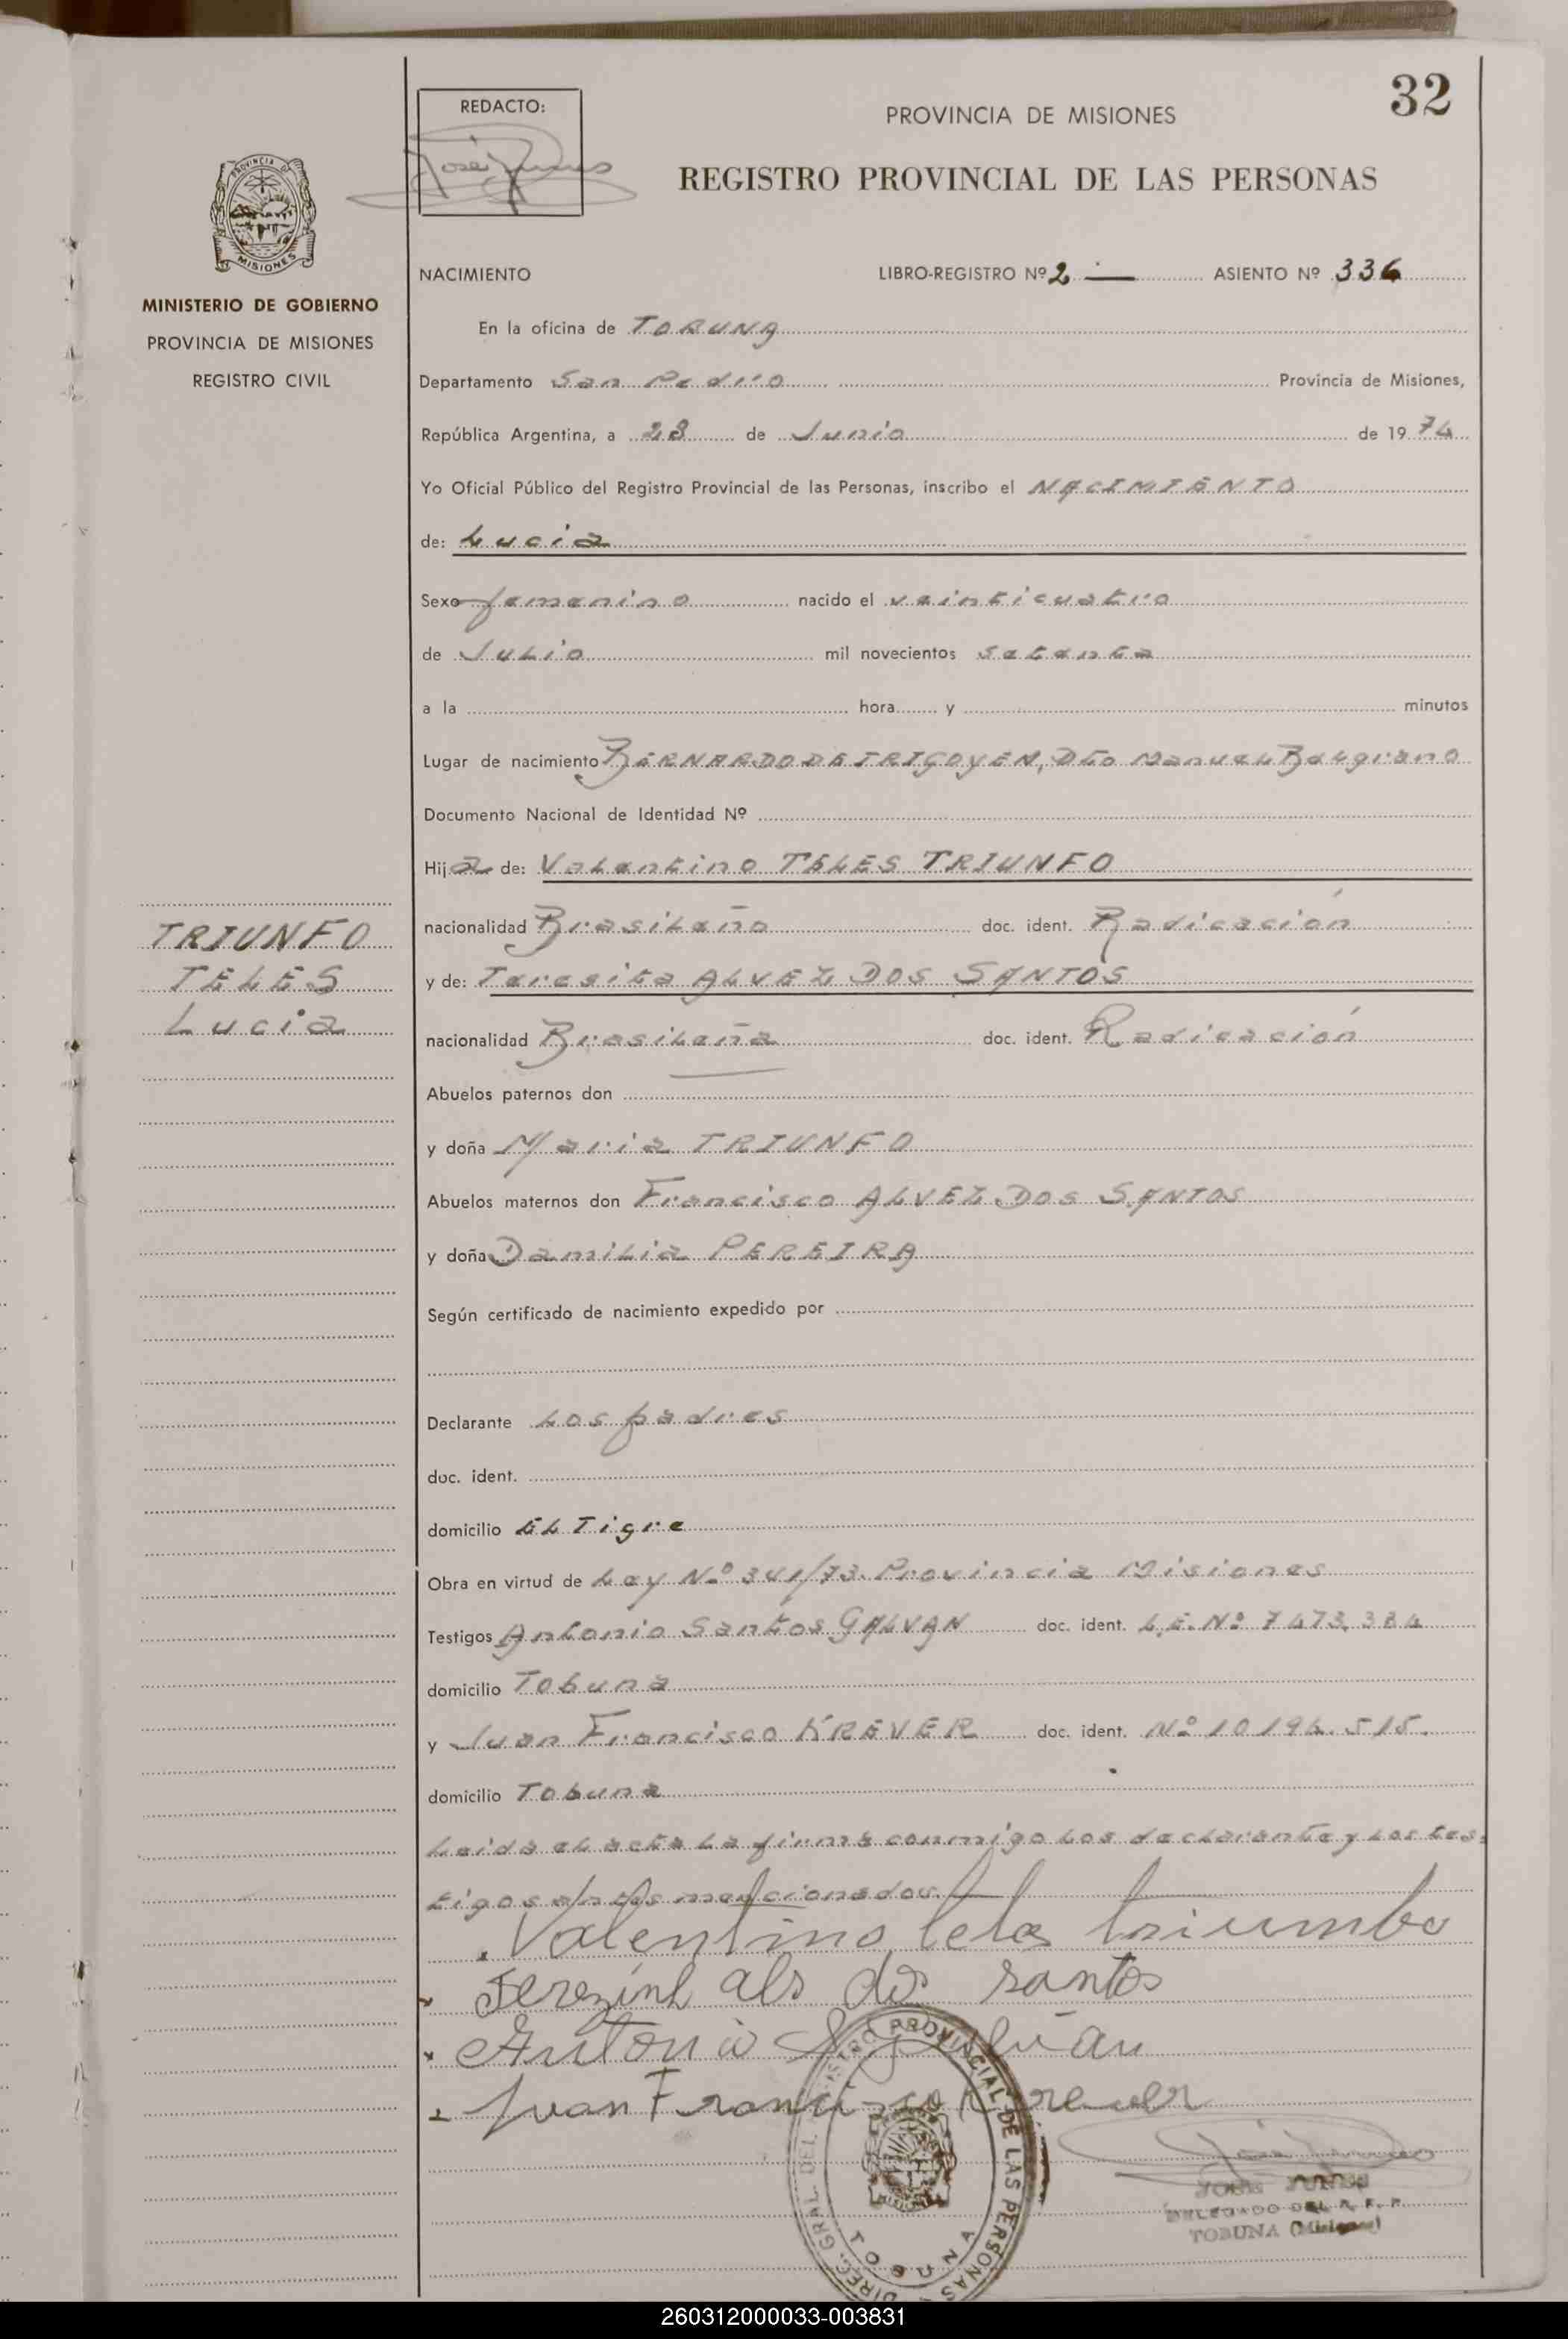 32
REDACTO:
PROVINCIA DE MISIONES
REGISTRO PROVINCIAL DE LAS PERSONAS
PROVINCIA DE
MISIONES
MINISTERIO DE GOBIERNO
PROVINCIA DE MISIONES
REGISTRO CIVIL
NACIMIENTO LIBRO-REGISTRO Nº 2 — ASIENTO Nº 336
En la oficina de TOBUNA
Departamento San Pedro Provincia de Misiones,
República Argentina, a 28 de Junio de 1974
Yo Oficial Público del Registro Provincial de las Personas, inscribo el NACIMIENTO
de: Lucia
Sexo femenino nacido el veinticuatro
de Julio mil novecientos setenta
a la hora y minutos
Lugar de nacimiento BERNARDO DE IRIGOYEN, Dto Manuel Belgrano
Documento Nacional de Identidad Nº
Hija de: Valentino TELES TRIUNFO
nacionalidad Brasileño doc. ident. Radicación
y de: Teresita ALVEZ DOS SANTOS
nacionalidad Brasileña doc. ident. Radicación
TRIUNFO
TELES
Lucia
Abuelos paternos don
y doña Maria TRIUNFO
Abuelos maternos don Francisco ALVEZ DOS SANTOS
y doña Damilia PEREIRA
Según certificado de nacimiento expedido por
Declarante Los padres
doc. ident.
domicilio EL Tigre
Obra en virtud de Ley Nº 341/73. Provincia Misiones
Testigos Antonio Santos GALVAN doc. ident. L.E. Nº 7473.384
domicilio Tobuna
y Juan Francisco KREVER doc. ident. Nº 10194.515.
domicilio Tobuna
Leida el acta la firma conmigo los declarante y los tes-
tigos antes mencionados.
Valentino teles triumbo
Terezinh als dos santos
Antonio S Galván
Juan Francisco Krever
DIREC. GRAL. DEL REGISTRO PROVINCIAL DE LAS PERSONAS
MISIONES
TOBUNA
DELEGADO DEL R. P. P.
TOBUNA (Misiones)
260312000033-003831